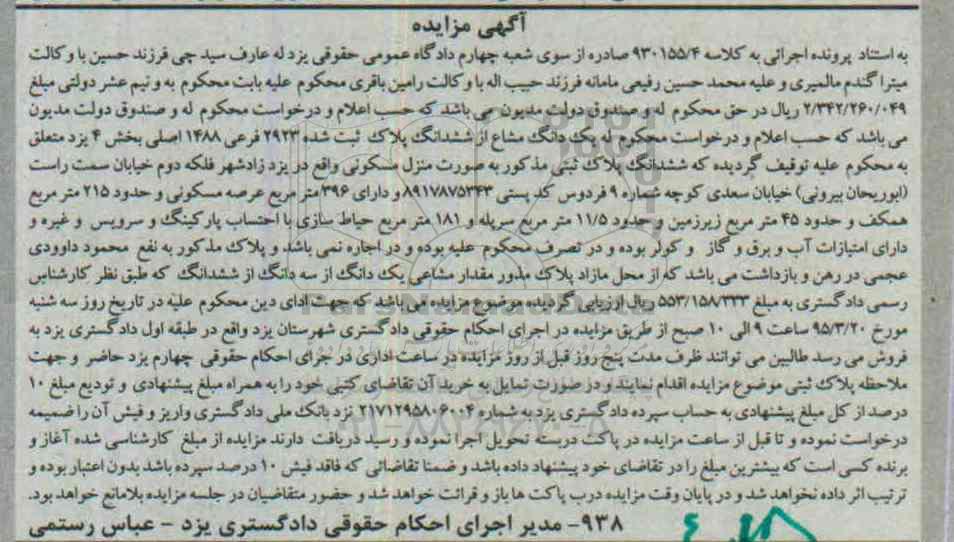 آگهی مزایده
به استناد پرونده اجرائی به کلاسه ۹۳۰۱۵۵/۴ صادره از سوی شعبه چهارم دادگاه عمومی حقوقی یزد له عارف سید جی فرزند حسین با وکالت
میترا گندم مالمیری و علیه محمد حسین رفیعی مامانه فرزند حبیب اله با وکالت رامین باقری محکوم علیه بابت محکوم به و نیم عشر دولتی مبلغ
۲/۳۴۲/۲۶۰/۰۴۹ ریال در حق محکوم له و صندوق دولت مدیون می باشد که حسب اعلام و درخواست محکوم له و صندوق دولت مدیون
می باشد که حسب اعلام و درخواست محکوم له یک دانگ مشاع از ششدانگ پلاک ثبت شده ۲۹۲۳ فرعی ۱۴۸۸ اصلی بخش ۴ یزد متعلق
به محکوم علیه توقیف گردیده که ششدانگ پلاک ثبتی مذکور به صورت منزل مسکونی واقع در یزد زادشهر فلکه دوم خیابان سمت راست
(ابوریحان بیرونی) خیابان سعدی کوچه شماره ۹ فردوس کد پستی ۸۹۱۷۸۷۵۳۴۳ و دارای ۳۹۶ متر مربع عرصه مسکونی و حدود ۲۱۵ متر مربع
همکف و حدود ۴۵ متر مربع زیرزمین و حدود ۱۱/۵ متر مربع سرپله و ۱۸۱ متر مربع حیاط سازی با احتساب پارکینگ و سرویس و غیره و
دارای امتیازات آب و برق و گاز و کولر بوده و در تصرف محکوم علیه بوده و در اجاره نمی باشد و پلاک مذکور به نفع محمود داوودی
عجمی در رهن و بازداشت می باشد که از محل مازاد پلاک مذور مقدار مشاعی یک دانگ از سه دانگ از ششدانگ که طبق نظر کارشناس
رسمی دادگستری به مبلغ ۵۵۳/۱۵۸/۳۳۳ ریال ارزیابی گردیده موضوع مزایده می باشد که جهت ادای دین محکوم علیه در تاریخ روز سه شنبه
مورخ ۹۵/۳/۲۰ ساعت ۹ الی ۱۰ صبح از طریق مزایده در اجرای احکام حقوقی دادگستری شهرستان یزد واقع در طبقه اول دادگستری یزد به
فروش می رسد طالبین می توانند ظرف مدت پنج روز قبل از روز مزایده در ساعت اداری در جرای احکام حقوقی چهارم یزد حاضر و جهت
ملاحظه پلاک ثبتی موضوع مزایده اقدام نمایند و در صورت تمایل به خرید آن تقاضای کتبی خود را به همراه مبلغ پیشنهادی و تودیع مبلغ ۱۰
درصد از کل مبلغ پیشنهادی به حساب سپرده دادگستری یزد به شماره ۲۱۷۱۲۹۵۸۰۶۰۰۴ نزد بانک ملی دادگستری واریز و فیش آن را ضمیمه
درخواست نموده و تا قبل از ساعت مزایده در پاکت دربسته تحویل اجرا نموده و رسید دریافت دارند مزایده از مبلغ کارشناسی شده آغاز و
برنده کسی است که بیشترین مبلغ را در تقاضای خود پیشنهاد داده باشد و ضمنا تقاضائی که فاقد فیش ۱۰ درصد سپرده باشد بدون اعتبار بوده و
ترتیب اثر داده نخواهد شد و در پایان وقت مزایده درب پاکت ها باز و قرائت خواهد شد و حضور متقاضیان در جلسه مزایده بلامانع خواهد بود.
۹۳۸- مدیر اجرای احکام حقوقی دادگستری یزد - عباس رستمی